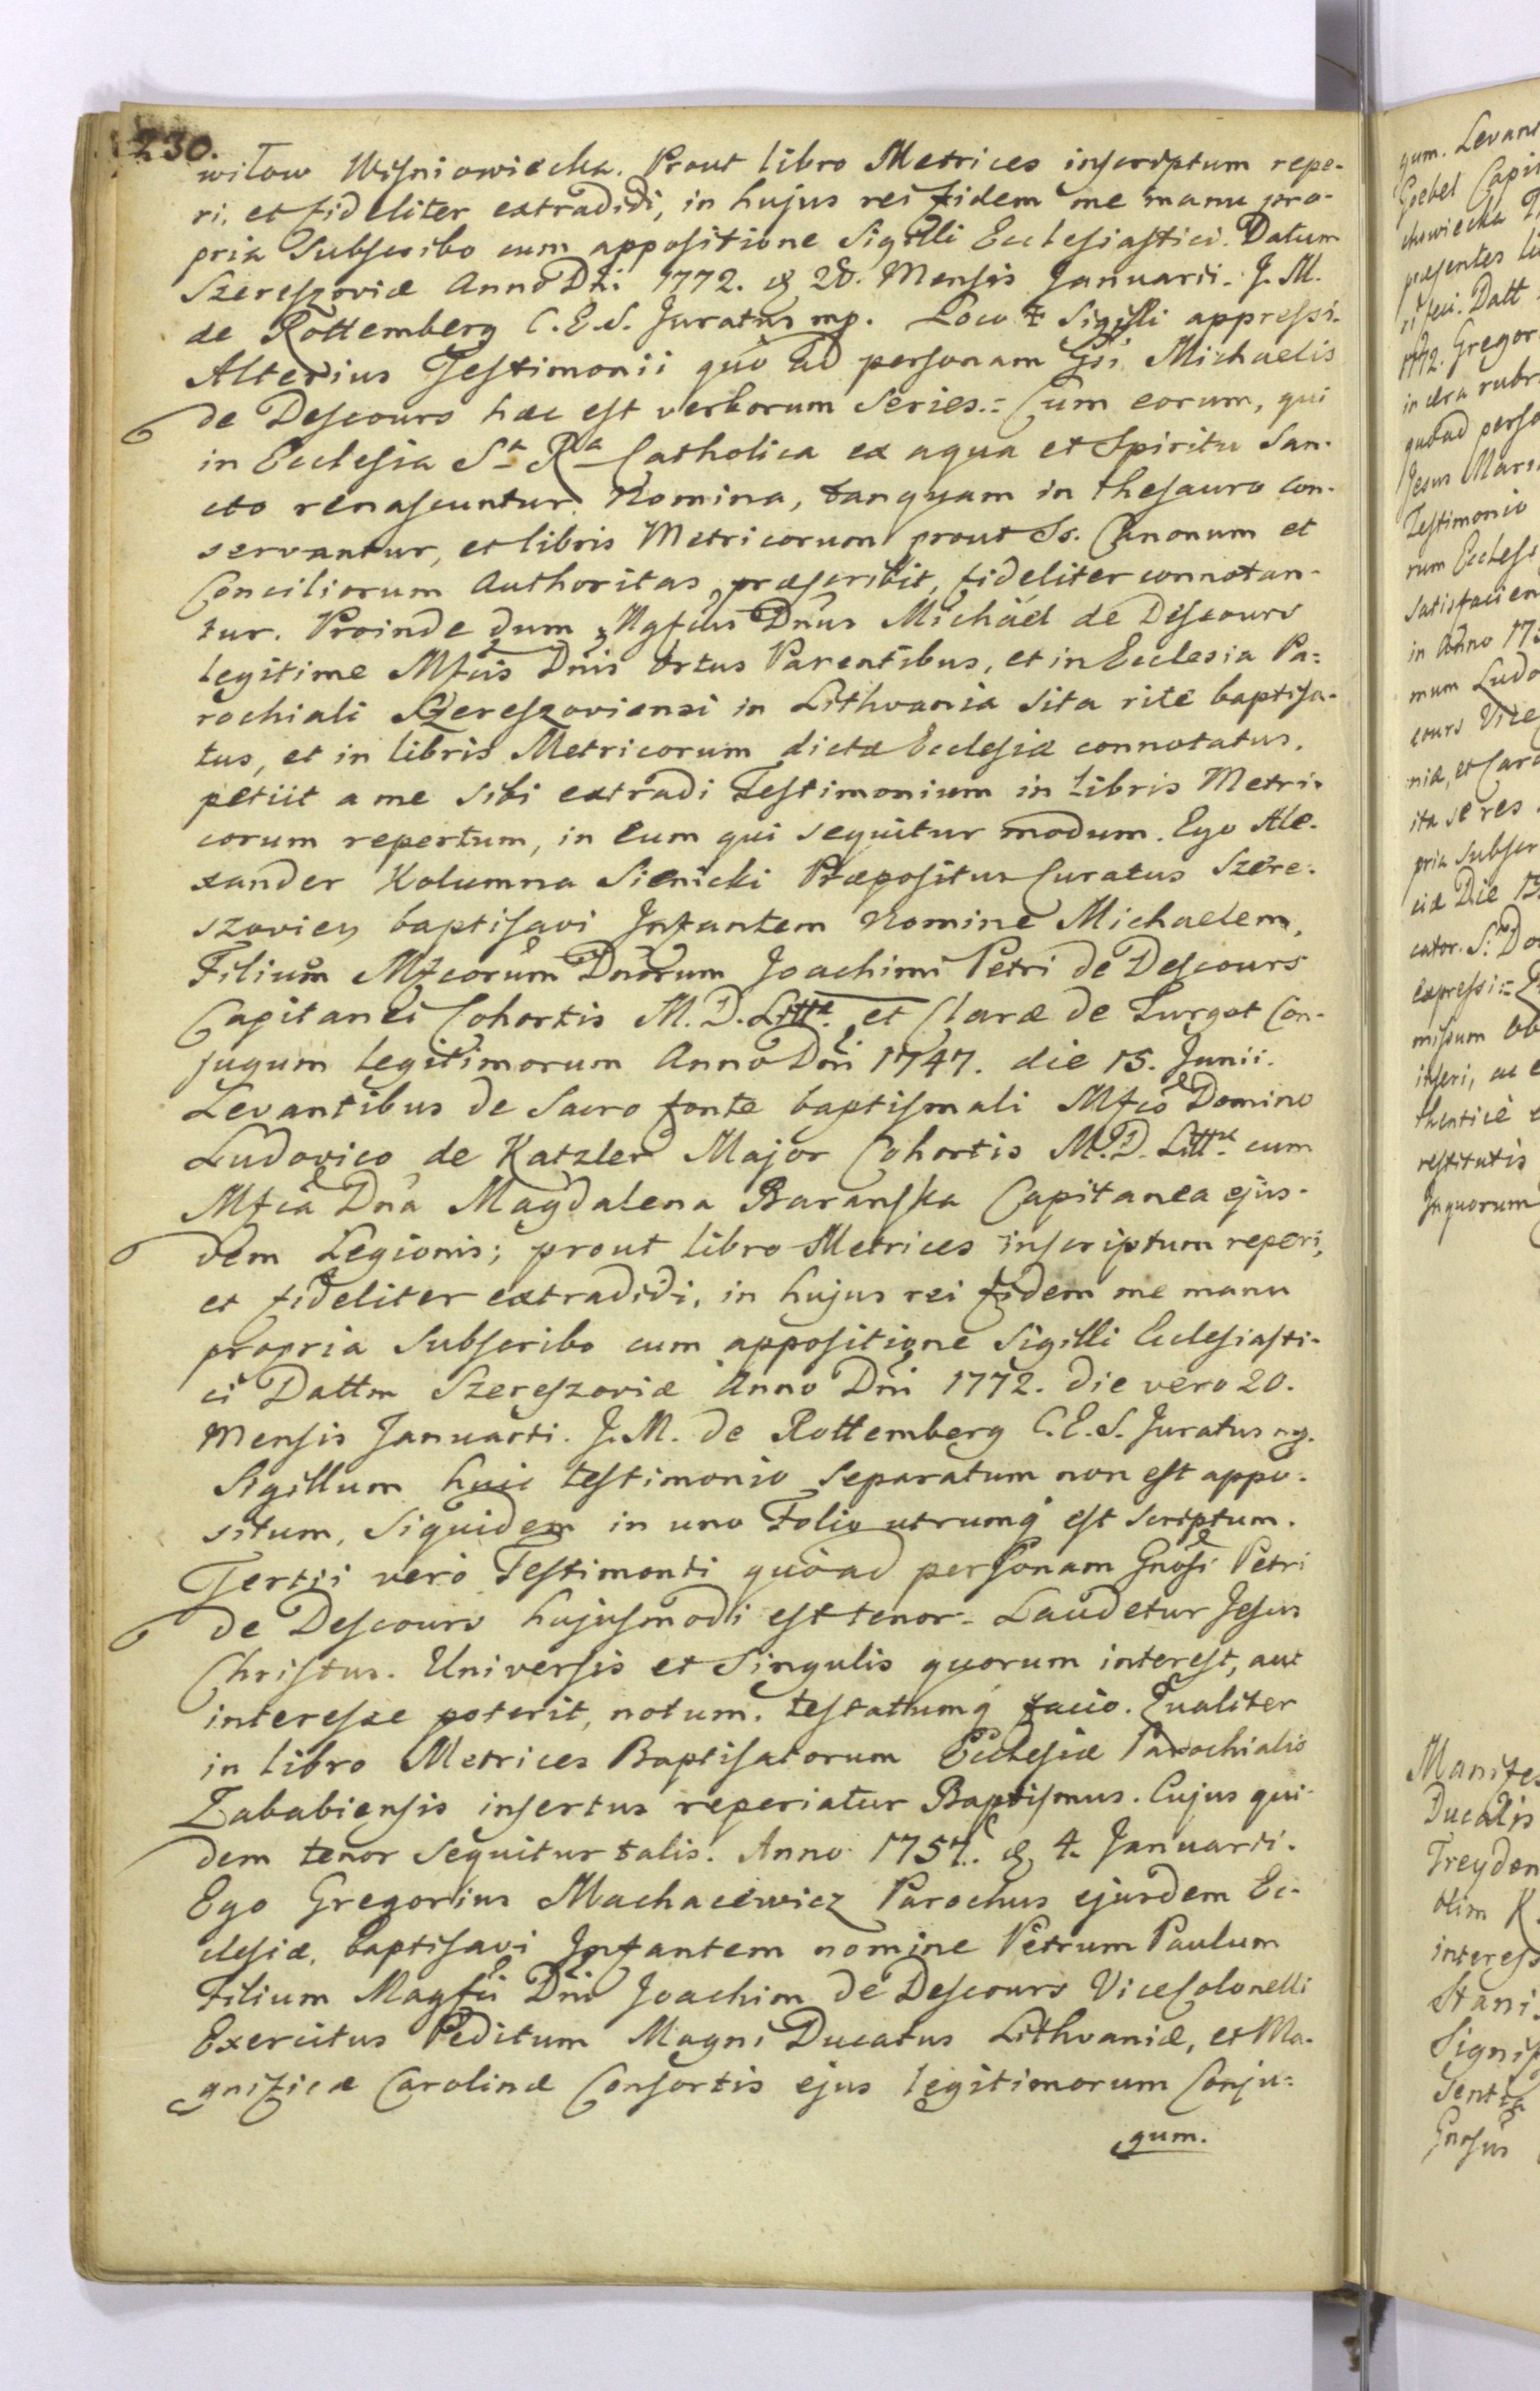 230.
witow Wiſniowiecka. Prout libro Metrices inſcriptum repe-
ri, et fideliter extradidi, in hujus rei fidem me manu pro-
pria Subſcribo cum appoſitione Sigilli Eccleſiaſtici. Datum
Szereſzoviæ Anno Dni 1772. d 20. Menſis Januarii. J. M.
de Rottemberg C. E. S. Juratus mp. Loco ‡ Sigilli appreſſi.
Alterius Teſtimonii quo ad perſonam Gſi Michaelis
de Deſcours hæc eſt verborum Series.= Cum eorum, qui
in Eccleſia Sta Rna Catholica ex aqua et Spiritu San-
cto renaſcuntur Nomina, tanquam in theſauro con-
servantur, et libris Metricorum prout Ss. Canonum et
Conciliorum Authoritas præſcribit, fideliter connotan-
tur. Proinde dum Mgfcus Dnus Michäel de Deſcours
legitime Mfcis Dnis Ortus Parentibus, et in Ecclesia Pa=
rochiali Szereſzoviensi in Lithvania Sita rite baptiſa-
tus, et in libris Metricorum dictæ Eccleſiæ connotatus,
petiit a me Sibi extradi Teſtimonium in Libris Metri-
corum repertum, in eum qui sequitur modum. Ego Ale-
xander Kolumna Sienicki Præpoſitus Curatus Szere-
szovien baptiſavi Infantem Nomine Michaelem,
Filium Mfcorum Dnorum Joachimi Petri de Deſcours
Capitanei Cohortis M. D. Littæ. et Claræ de Turgot Con-
jugum legitimorum Anno Dni 1747. die 15. Junii.
Levantibus de Sacro fonte baptiſmali Mfco Domino
Ludovico de Katzler Major Cohortis M. D. Littæ cum
Mfca Dna Magdalena Baranſka Capitanea ejus-
dem Legionis; prout libro Metrices inſcriptum reperi,
et fideliter extradidi, in hujus rei fidem me manu
propria Subſcribo cum appoſitione Sigilli Eccleſiaſti-
ci Dattm Szereſzoviæ Anno Dni 1772. die vero 20.
Menſis Januarii. J. M. de Rottemberg C. E. S. Juratus mp.
Sigillum huic teſtimonio Separatum non eſt appo-
situm, Siquidem in uno Folio utrumq eſt Scriptum.
Tertii vero Teſtimonii quoad perſonam Gnoſi Petri
de Deſcours hujuſmodi eſt tenor= Laudetur Jeſus
Chriſtus. Univerſis et Singulis quorum intereſt, aut
intereſſe poterit, notum, teſtattumq facio. Qualiter
in libro Metrices Baptiſatorum Eccleſiæ Parochialis
Zababienſis inſertus reperiatur Baptiſmus. Cujus qui-
dem tenor Sequitur talis. Anno 1757. d 4. Januarii.
Ego Gregorius Machacewicz Parochus ejusdem Ec-
cleſiæ, baptiſavi Infantem nomine Petrum Paulum
Filium Magfci Dni Joachim de Deſcours ViceColonelli
Exercitus Peditum Magni Ducatus Lithvaniæ, et Ma-
gnificæ Carolinæ Conſortis ejus legitimorum Conju=
gum.
gum. Levant
Goebel Capit
chowiecka
præſentes li
ri feci. Datt
1772. Gregor
in cera rubr
quoad perſo
Jeſus Mari
Teſtimonio
rum Eccleſi
Satisfacien
in Anno 17
mum Ludo
cours Vice
niæ, et Caro
ita se res
pria Subſcr
ciæ Die 13
cator. S. Do
expreſſi.=
miſſum Ob
inſeri, ac e
thenticè e
reſtitutis
In quorum
Manifes
Ducalis
Treyden
olim K
intereſs
Stani
Signif
Sentta
Gnoſus